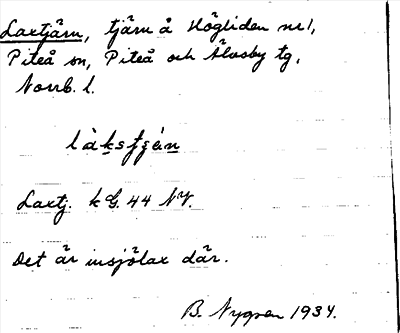 Laxtjärn, tjärn å Högliden nr 1,
Piteå sn, Piteå och Älvsby tg,
Norrb. l.
Laxtj. kG. 44 NV.
Det är insjölax där.
B. Nygren 1934.